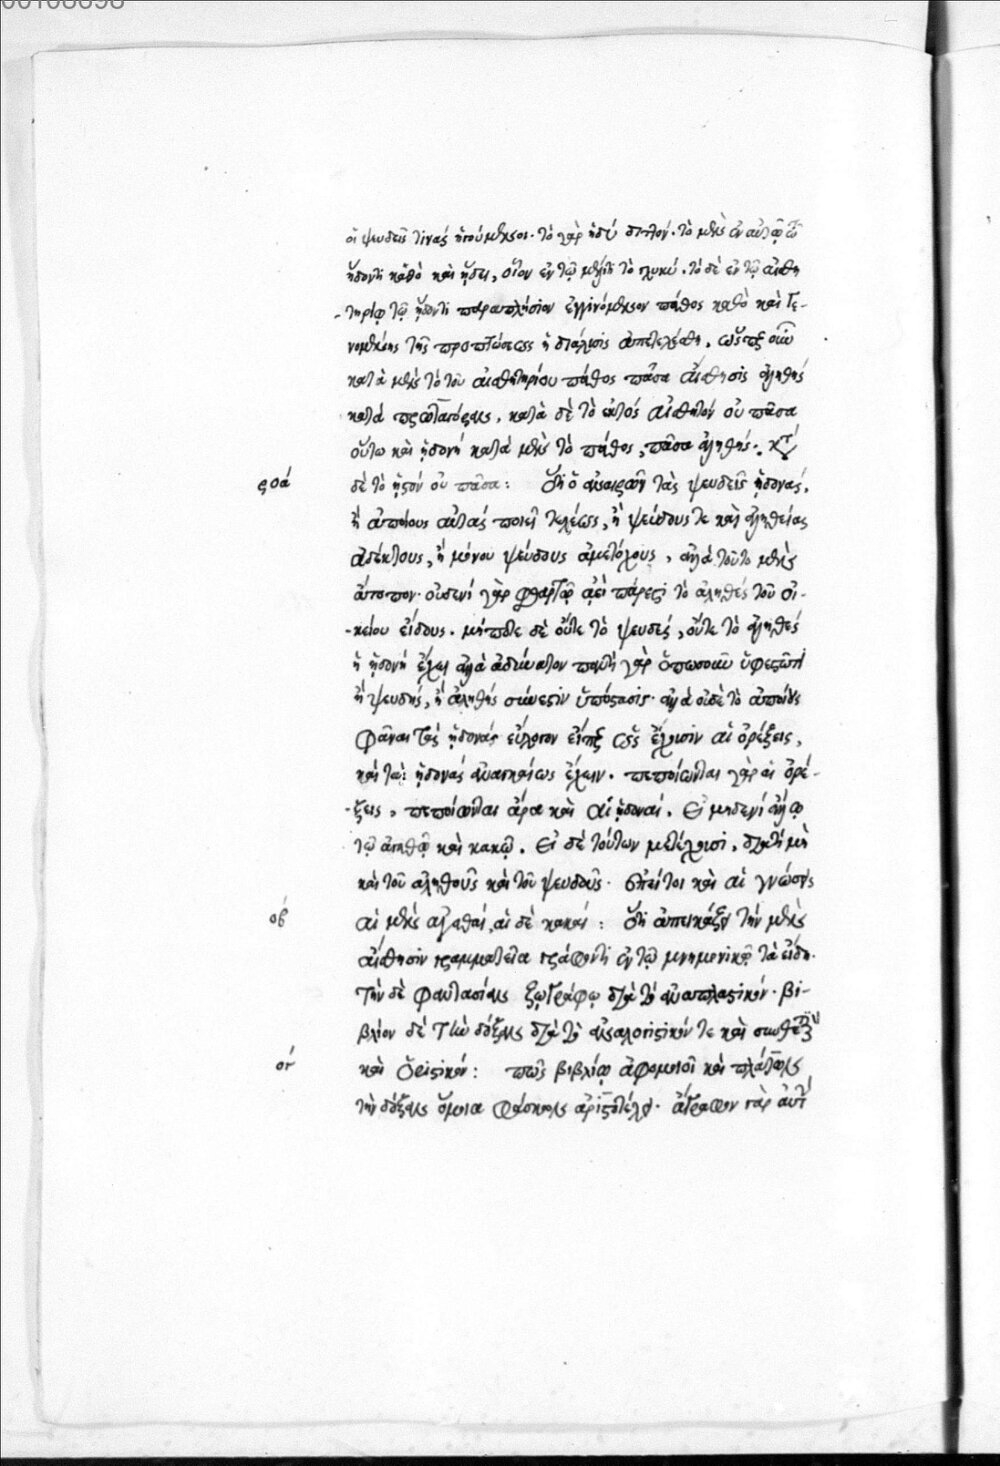 00108698
οἱ ψευδεῖς τινάς ἡγούμενος· τὸ γὰρ ἡδὺ διπλόν· τὸ μὲν ἐν αὐτῷ τῷ
ἥδοντι καθὸ καὶ ἥδει, οἷον ἐν τῷ μέλιτι τὸ γλυκύ. τὸ δὲ ἐν τῷ αἰσθη
-τηρίῳ τῷ ἥδοντι παραπλήσιον ἐγγινόμενον πάθος καθὸ καὶ γε-
νομένης τῆς προσπτώσεως ἡ διάλυσις ἀπετελέσθη. ὥσπερ οὖν
κατὰ μὲν τὸ τοῦ αἰσθητηρίου πάθος πᾶσα αἴσθησις ἀληθής
κατὰ πρωταγόραν, κατὰ δὲ τὸ ἐκτός αἰσθητόν οὐ πᾶσα
οὕτω καὶ ἡδονή κατὰ μὲν τὸ πάθος, πᾶσα ἀληθής. κατὰ
ροά
δὲ τὸ ἡστόν οὐ πᾶσα: ὅτι ὁ ἀναιρῶν τὰς ψευδεῖς ἡδονάς,
ἢ ἀποίους αὐτάς ποιεῖ τελέως, ἢ ψεύδους τε καὶ ἀληθείας
ἀδέκτους, ἢ μόνου ψεύδους ἀμετόχους, ἀλλὰ τοῦτο μὲν
ἄτοπον· οὐδενί γὰρ φθαρτῷ ἀεὶ πάρεστι τὸ ἀληθές τοῦ οἰ-
-κείου εἴδους. μήποτε δὲ οὔτε τὸ ψευδές, οὔτε τὸ ἀληθές
ἡ ἡδονή ἔχει ἀλλὰ ἀδύνατον παντὶ γὰρ ὁπωσοῦν ὑφεστῶτι
ἢ ψευδής, ἢ ἀληθής σύνεστιν ὑπόστασις· ἀλλὰ οὐδὲ τὸ ἀποίους
φάναι τὰς ἡδονάς εὔλογον εἴπερ ὡς ἔχουσιν αἱ ὀρέξεις,
καὶ τὰς ἡδονάς ἀναγκαίως ἔχειν. πεποίωνται γὰρ αἱ ὀρέ-
-ξεις, πεποίωνται ἄρα καὶ αἱ ἡδοναί. εἰ μηδενί ἄλλῳ
τῷ ἀγαθῷ καὶ κακῷ. εἰ δὲ τούτων μετέχουσι, διατί μὴ
καὶ τοῦ ἀληθοῦς καὶ τοῦ ψευδοῦς· ἐπεί τοι καὶ αἱ γνώσεις
οβ
αἱ μὲν ἀγαθαί, αἱ δὲ κακαί: ὅτι ἀπεικάζει τὴν μὲν
αἴσθησιν γραμματεῖα γράφοντι ἐν τῷ μνημονικῷ τὰ εἴδη.
τὴν δὲ φαντασίαν ζωγράφῳ διὰ τὸ ἀναπλαστικόν· βι-
βλίον δὲ τὴν δόξαν διὰ τὸ ἀναλογιστικόν τε καὶ συνθετικὸν
ογ
καὶ ὁριστικόν: πῶς βιβλίῳ ἀφομοιοῖ καὶ πλάτων
τὴν δόξαν ὅμοια φάσκων ἀριστοτέλει· ἄγραφον γὰρ αὐτ